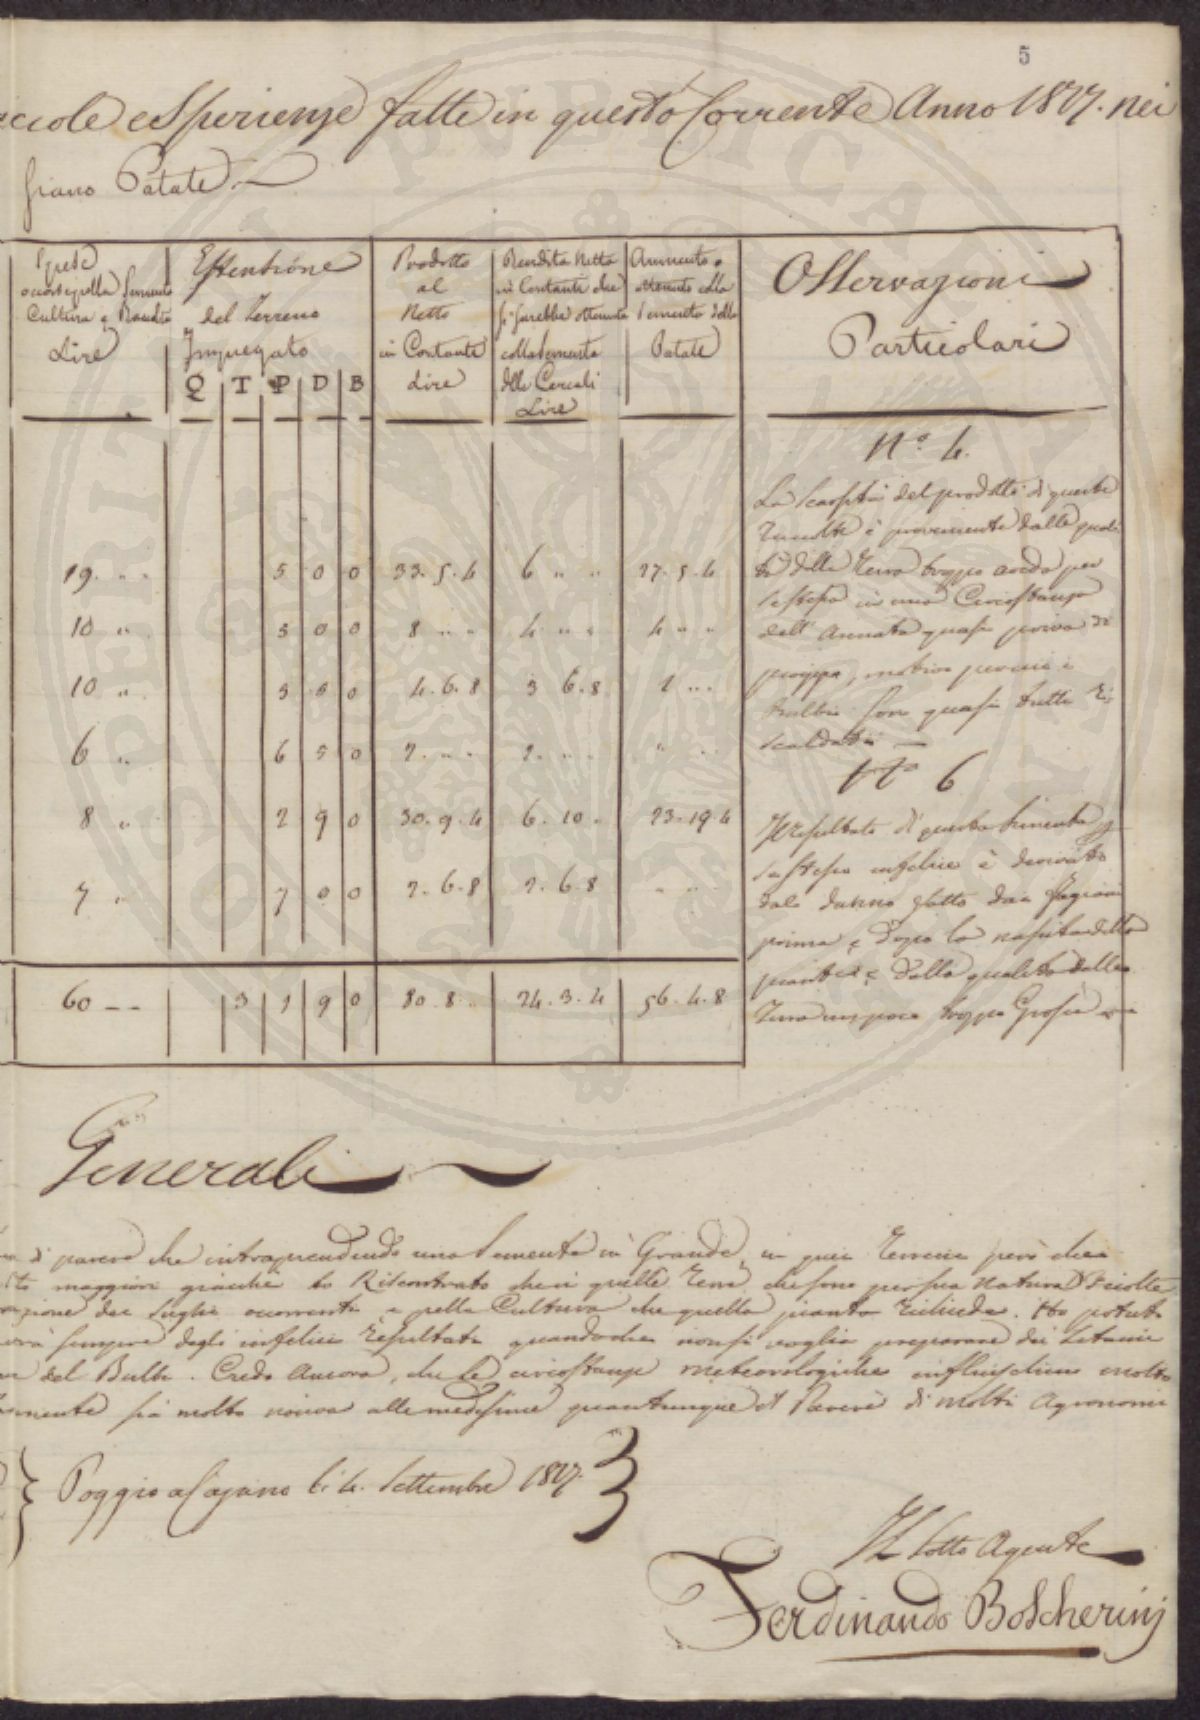 5
ccole esperienze fatte in questo Corrente Anno 1817. nei
Patate
Spese
occorse pella Sementa
Cultura e Raccolta
Lire
Estensione
del Terreno
Impiegato
Q T P D B
Prodotto
al
Netto
in Contante
Lire
Rendita Netta
in Contante che
si sarebbe ottenuta
colla Sementa
delle Cereali
Lire
Aumento
ottenuto colla
Sementa delle
Patate
Osservazioni
Particolari
19. " " 5 0 0 33. 5. 4 6 " " 27. 5. 4
10 " 5 0 0 8 " " 4 " " 4 " "
10 " 5 0 4. 6. 8 3 6. 8 1 " "
6 " 6 5 0 2. " " 2. " " " "
8 " 2 9 0 30. 9. 4 6. 10 " 23. 19. 4
7 " 7 0 0 2. 6. 8 2. 6. 8 " "
60 -- 3 1 9 0 80. 8 " 24. 3. 4 56. 4. 8
N.o 4.
La scarsità del prodotto di questa
raccolta è proveniente dalla quali
tà della Terra troppo arida per
se stessa in una Circostanza
dell' Annata quasi priva di
pioggia, motivo perciò i
Bulbi son quasi tutti ri
scaldati
N.o 6
Il resultato di questa sementa per
se stessa infelice è derivato
dal danno fatto dai fagiani
prima e dopo la nascita delle
piante e dalla qualità della
Terra un poco troppo Grossa
Generali
di parere che intraprendendo una Sementa in Grande, in quei Terreni però che
maggiori giacchè ho Riscontrato che in quelle Terre che sono per sua Natura Sciolte
azione dei Sughi occorrenti e pella Cultura che quella pianta richiede. Ho potuto
sempre degli infelici resultati quando che non si voglia preparare dei Letami
del Bulbo. Credo Ancora, che le circostanze meteorologiche influischino molto
sia molto nociva alle medesime quantunque il Parere di molti Agronomi
Poggio a Cajano li 4. Settembre 1817.
Il Sotto Agente
Ferdinando Boscherinj